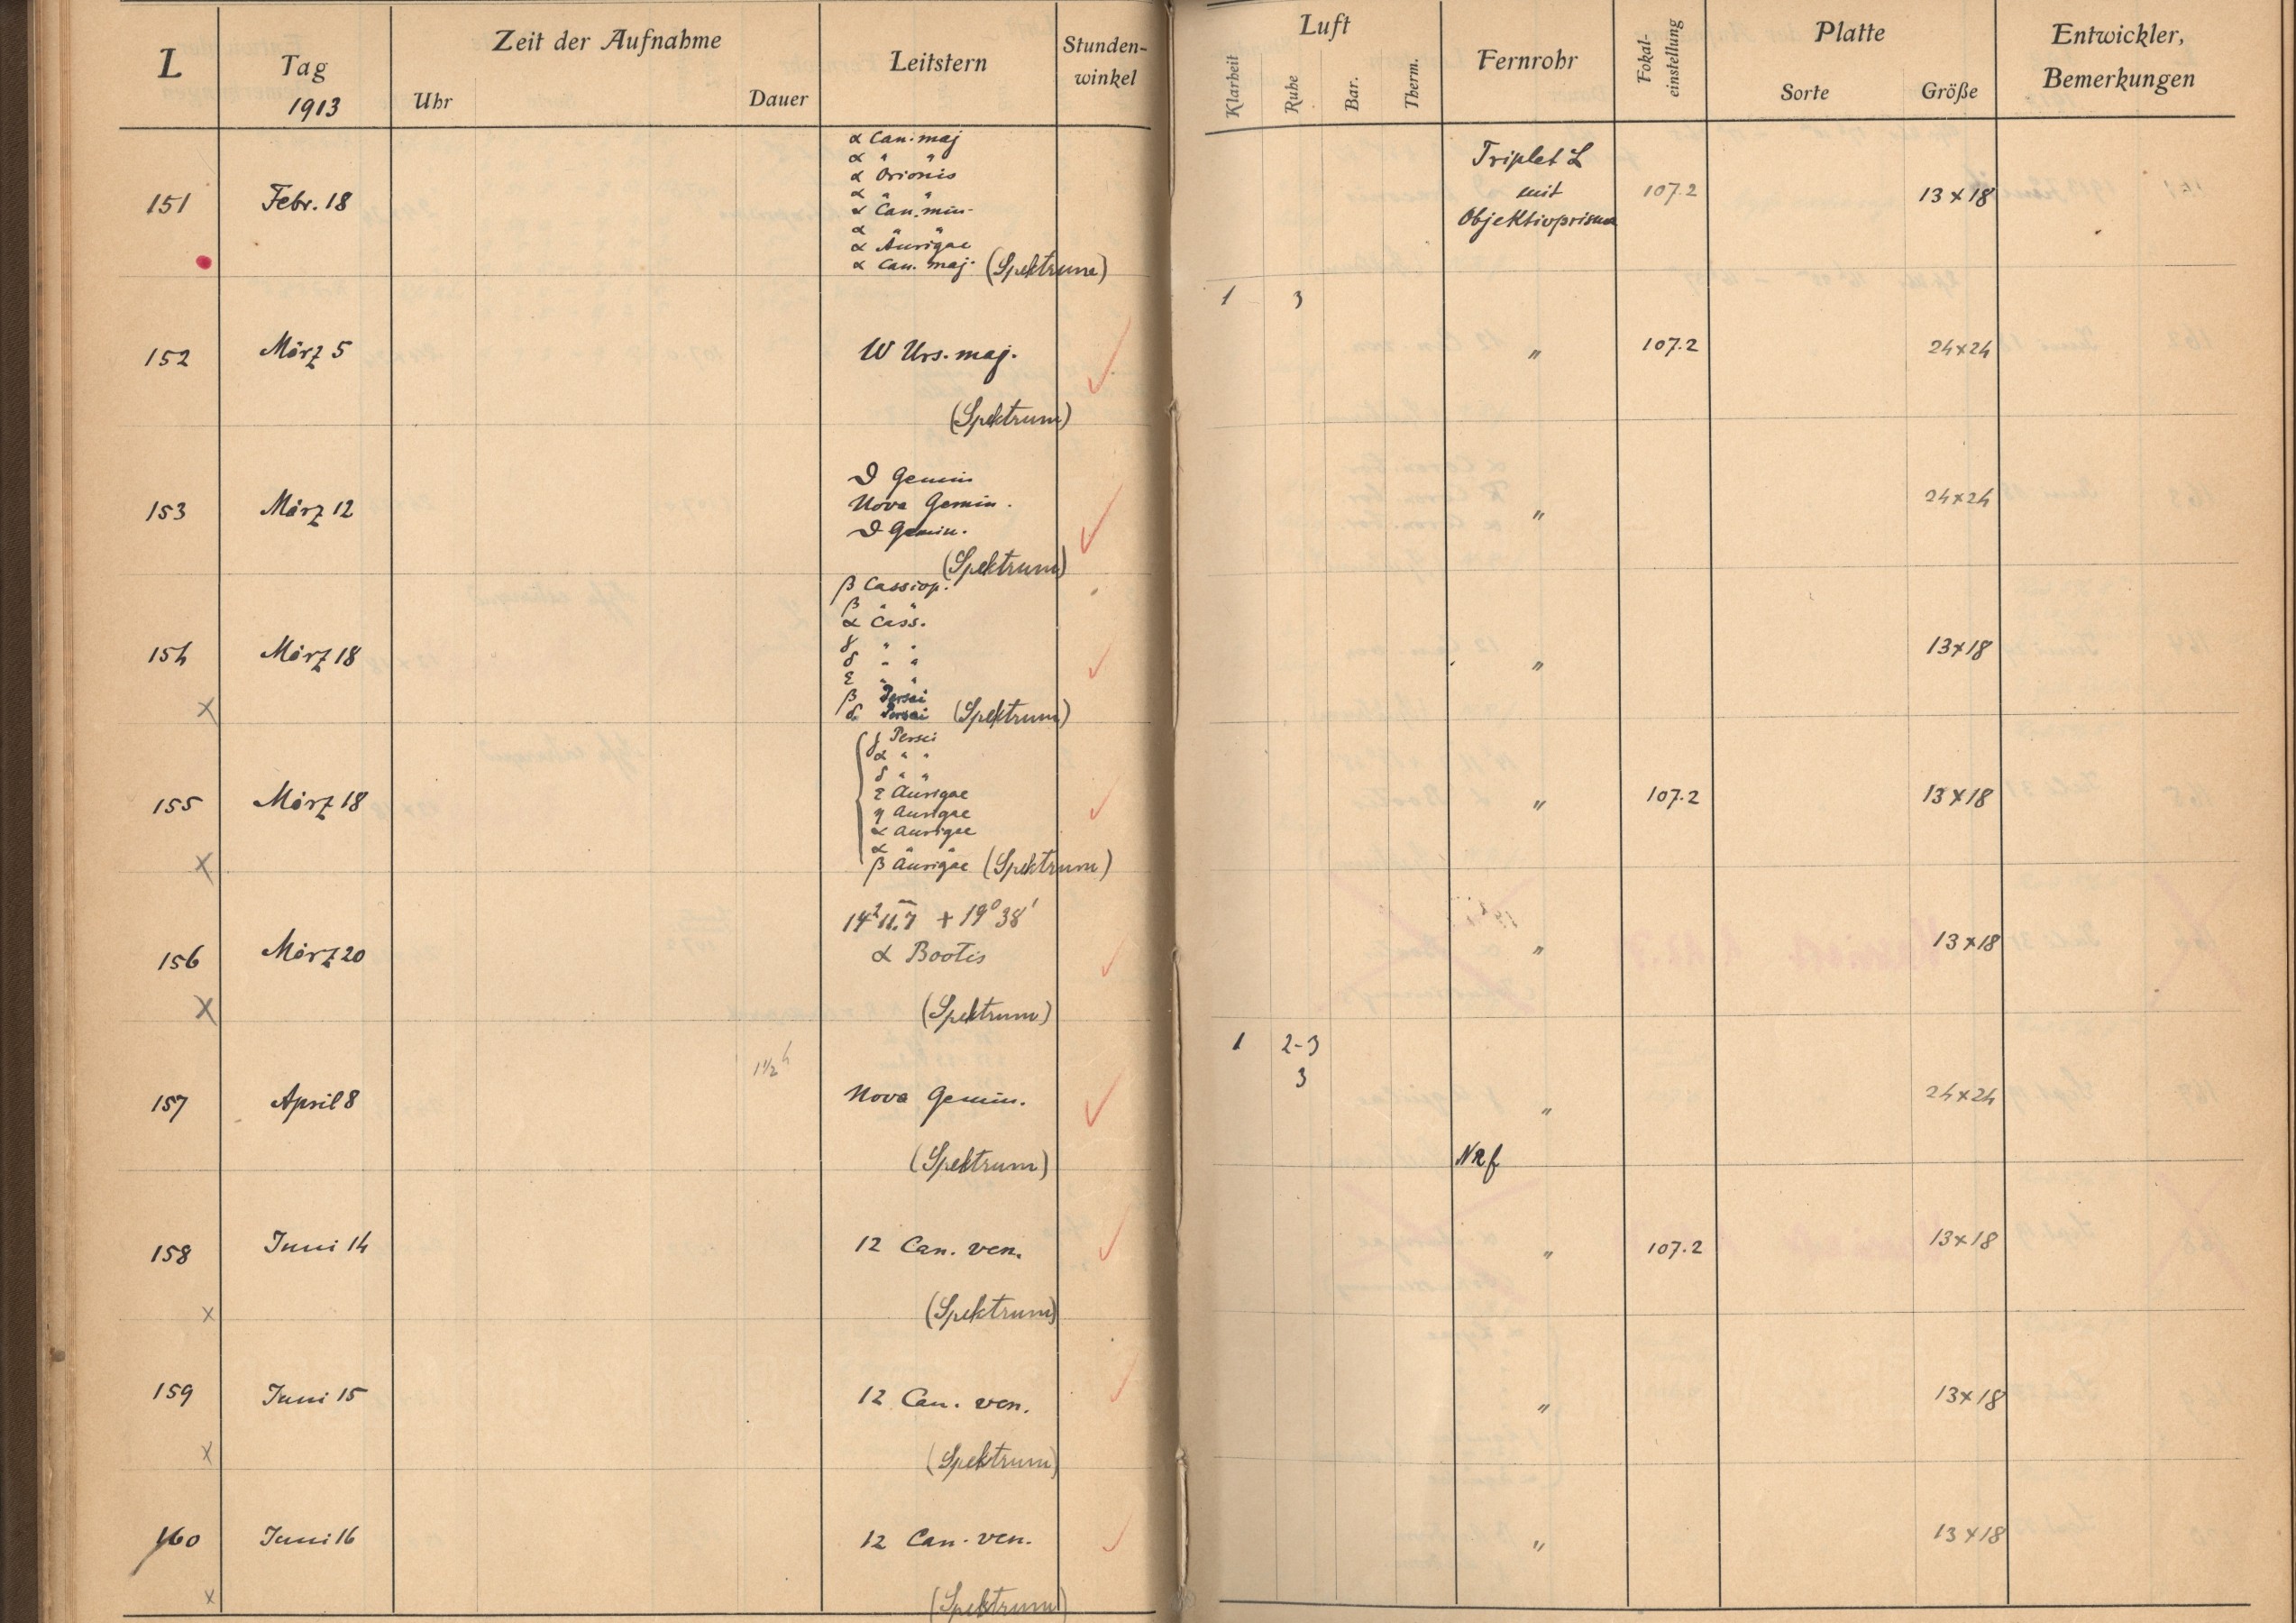 L Tag 1913 Zeit der Aufnahme Uhr Dauer Leitstern Stunden-winkel Luft Klarheit Ruhe Bar. Therm. Fernrohr Fokal-einstellung Platte Sorte Größe Entwickler, Bemerkungen
α Can. maj
α " "
α Orionis
α " "
α Can. min.
α " "
α Aurigae
α Can. maj. (Spektrum)
151 Febr. 18 Triplet L mit Objektivprisma 107.2 13×18
1 3
152 März 5 W Urs. maj. " 107.2 24×24
(Spektrum)
ϑ Gemin
Nova Gemin.
ϑ Gemin.
153 März 12 " 24×24
(Spektrum)
β Cassiop.
β " "
α Cass.
γ " "
δ " "
ε " "
β Persei
δ Persei (Spektrum)
154 März 18 " 13×18
×
γ Persei
α " "
δ " "
ε Aurigae
η Aurigae
α Aurigae
α " "
β Aurigae (Spektrum)
155 März 18 " 107.2 13×18
×
14 11.7 + 19° 38'
156 März 20 α Bootis " 13×18
× (Spektrum)
1½ h 1 2-3
3
157 April 8 Nova Gemin. " 24×24
(Spektrum)
158 Juni 14 12 Can. ven. " 107.2 13×18
× (Spektrum)
159 Juni 15 12 Can. ven. " 13×18
× (Spektrum)
160 Juni 16 12 Can. ven. " 13×18
× (Spektrum)